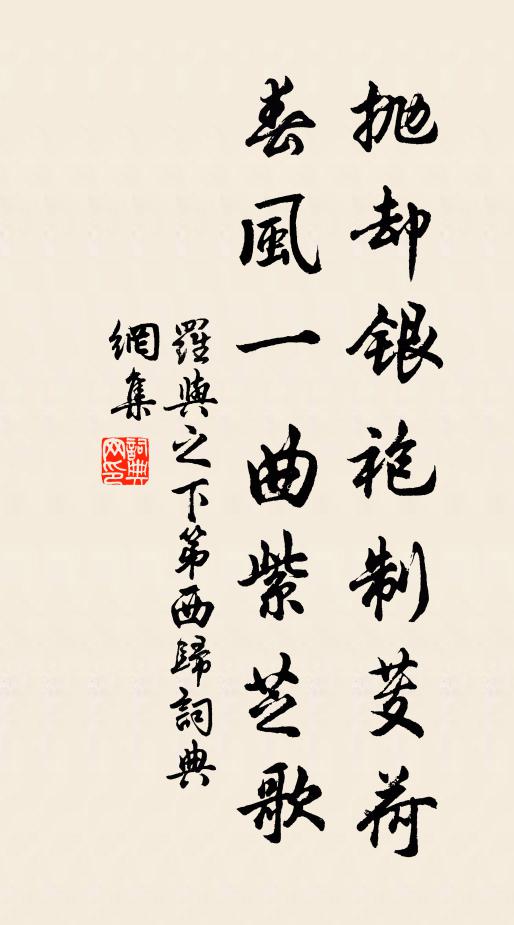 抛却銀袍制芰荷
春風一曲紫芝歌
羅與之下第西歸詞典
網集
詞典
网印